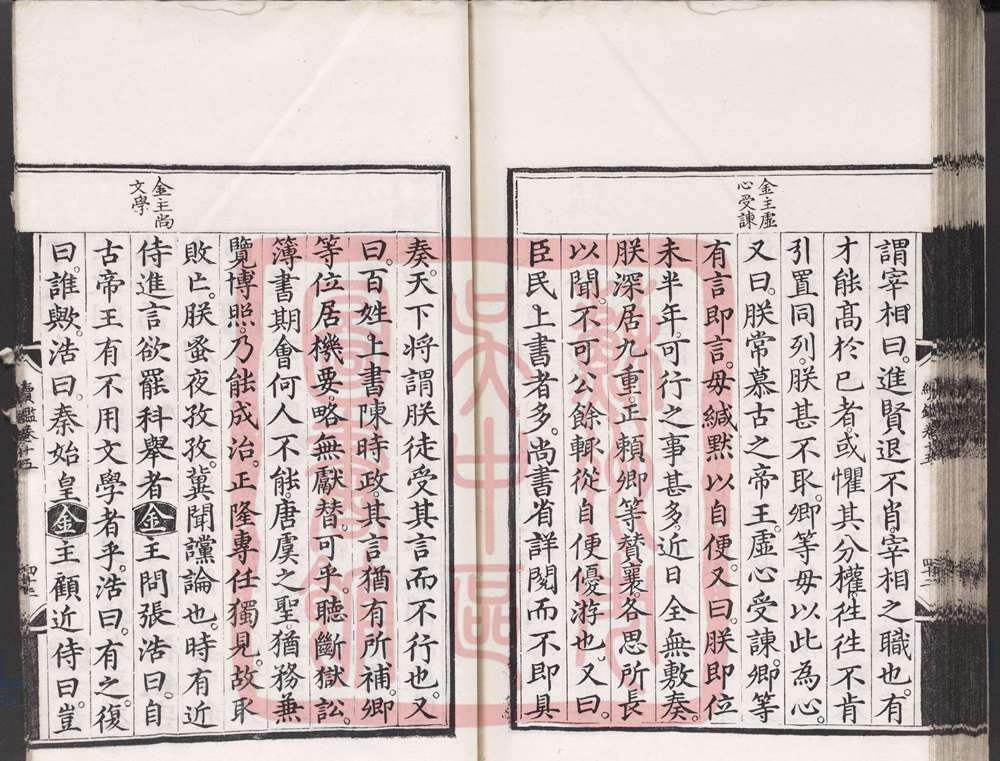 金主虛
心受諫
謂宰相曰進賢退不肖宰相之職也有
才能高於已者或懼其分權徃徃不肯
引置同列朕甚不取卿等毋以此為心
又曰朕常慕古之帝王虛心受諫卿等
有言即言毋緘默以自便又曰朕即位
未半年可行之事甚多近日全無敷奏
朕深居九重正賴卿等贊襄各思所長
以聞不可公餘輒從自便優游也又曰
臣民上書者多尚書省詳閱而不即具
金主尚
文學
奏天下將謂朕徒受其言而不行也又
曰百姓上書陳時政其言猶有所補卿
等位居機要略無獻替可乎聽斷獄訟
簿書期會何人不能唐虞之聖猶務兼
覽博照乃能成治正隆專任獨見故取
敗亡朕蚤夜孜孜冀聞讜論也時有近
侍進言欲罷科舉者金主問張浩曰自
古帝王有不用文學者乎浩曰有之復
曰誰歟浩曰秦始皇金主顧近侍曰豈
續鑑卷十五